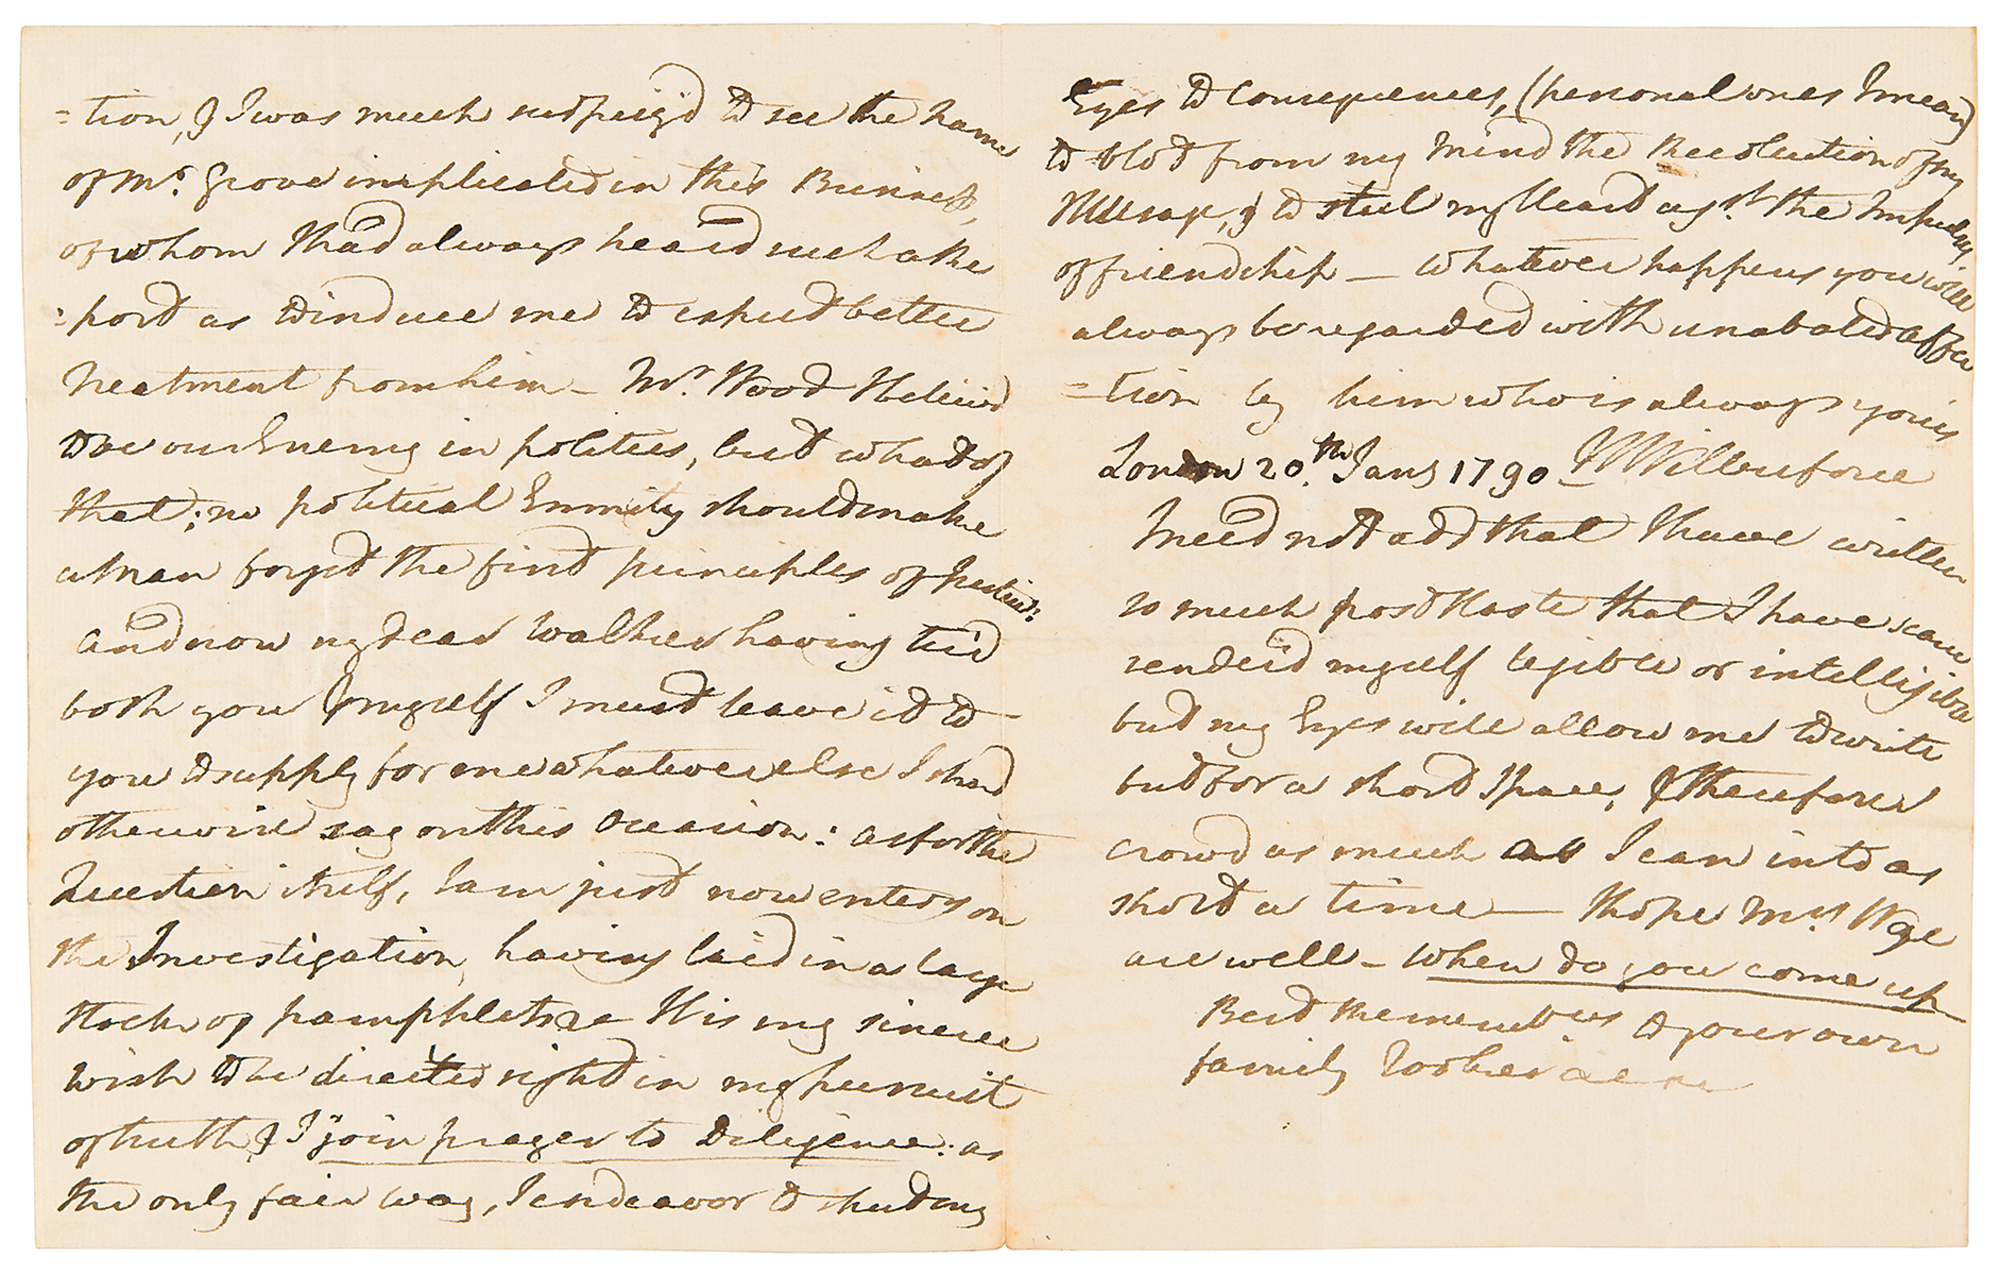 =tion, & I was much surpriz'd to see the name
of Mr. Grove implicated in this Business,
of whom I had always heard such a Re
:port as to induce me to expect better
Treatment from him - Mr. Wood I believ'd
to be our Enemy in politics, but what of
that; no political Enmity should make
a Man forget the first principles of Justice:
And now my dear Walker having tir'd
both you & myself I must leave it to
you to supply for me whatever else I sho'd
otherwise say on this Occasion: as for the
Question itself, I am just now entering on
the Investigation, having laid in a large
Stock of pamphlets &c It is my sincere
wish to be directed right in my pursuit
of truth, & I "join prayer to Diligence: as
the only fair way, I endeavor to shut my
Eyes to Consequences, (personal ones I mean)
to blot from my Mind the Recollection of my
Ill usage, & to steel my Heart agst. the Impulses
of friendship - Whatever happens you will
always be regarded with unabated Affec
=tion by him who is always yours
London 20th. Jany 1790 W Wilberforce
I need not add that I have written
so much post Haste that I have scarce
render'd myself legible or intelligible
but my Eyes will allow me to write
but for a short Space, & therefore I
crowd as much as I can into as
short a time - I hope Mrs. W &c
are well - When do you come up
Best Remembces to your own
family Cookes &c &c